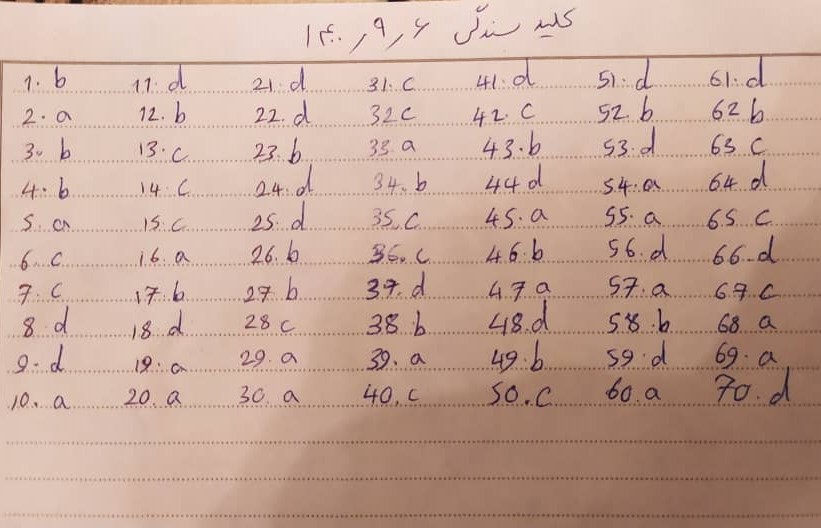 کلید سندگی ۱۴۰۰٫۹٫۶
1. b 11. d 21. d 31. c 41. d 51. d 61. d
2. a 12. b 22. d 32 c 42. c 52. b 62 b
3. b 13. c 23. b 33. a 43. b 53. d 63. c
4. b 14. c 24. d 34. b 44 d 54. a 64. d
5. a 15. c 25. d 35. c 45. a 55. a 65. c
6. c 16. a 26. b 36. c 46. b 56. d 66. d
7. c 17. b 27. b 37. d 47 a 57. a 67. c
8. d 18. d 28 c 38. b 48. d 58. b 68. a
9. d 19. a 29. a 39. a 49. b 59. d 69. a
10. a 20. a 30. a 40. c 50. c 60. a 70. d